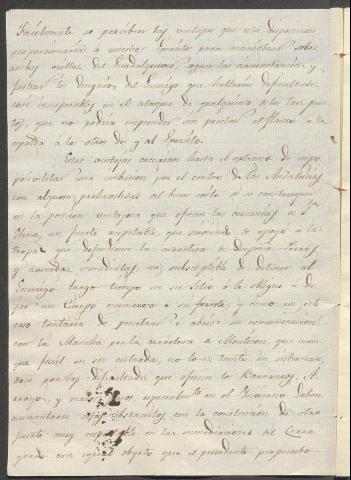 Facilmente se perciben las ventajas que esta disposicion
proporcionaria à nuestros Exercitos para maniobrar sobre
ambas orillas del Guadalquivir segun las circunstancias y
frustrar los designios del Enemigo que hallaria dificultades
casi insuperables en el ataque de qualquiera de los tres pun
tos, que no podria emprender sin prestar el flanco ò la
espalda à los otros dos y al Exercito.
Estas ventajas crecerian hasta el extremo de im
posivilitar una imbasion por el centro de las Andalucias
con alguna probabilidad del buen exito si se construyese
en la posicion ventajosa que ofrecen las cercanias de
un fuerte respetable, que sirviendo de apoyo à la
tropa que defendiera la carretera de Despeña Perros
y avenidas immediatas, sea susceptible de detener al
Enemigo largo tiempo en su Sitio ò le obligue à de
jar un Cuerpo numeroso à su frente; y como en este
caso trataria de penetrar ò abrir su comunicacion
con la Mancha por la carretera de Montizon, que aun
que facil en su entrada, no lo es tanto en internar
se por las dificultades que ofrecen los Barrancos, A
rroyos, y especialmte en el Invierno deben
aumentarse estos obstaculos con la construccion de otro
fuerte muy en las immediaciones de
con igual objeto que el precedente propuesto